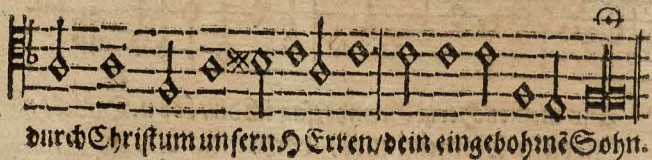 durch Christum unsern HErren/dein eingebohrnē Sohn.